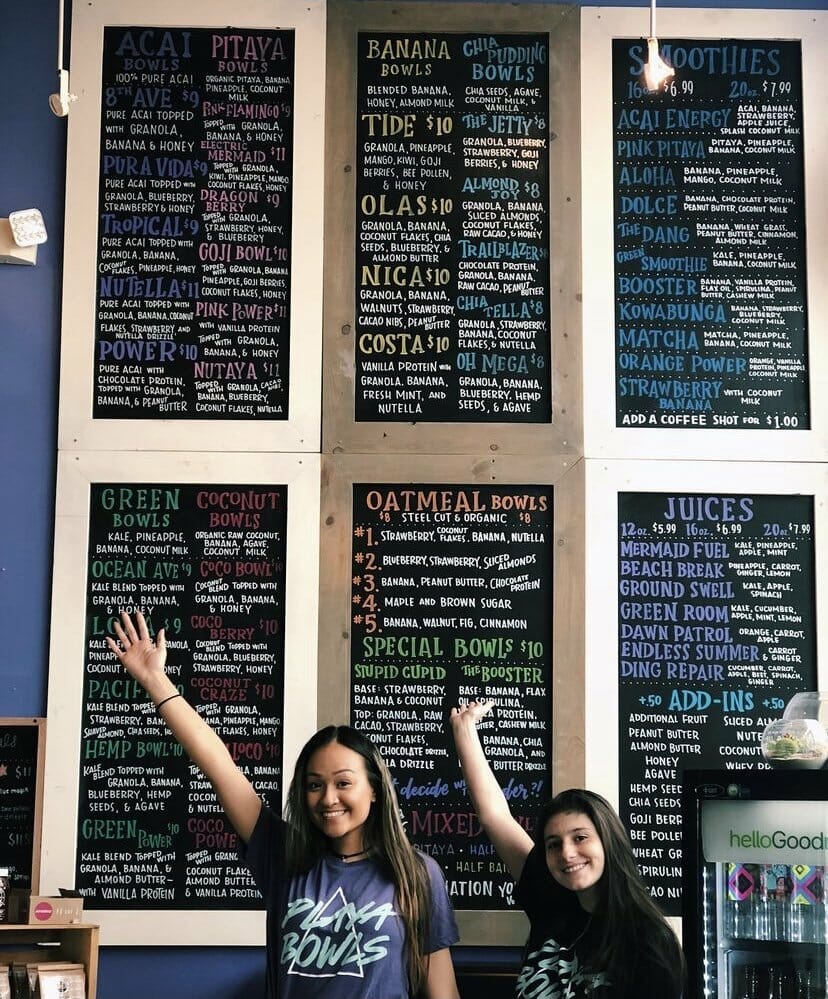 ACAI
BOWLS
100% PURE ACAI
8TH AVE $9
PURE ACAI TOPPED
WITH GRANOLA,
BANANA & HONEY
PURA VIDA $9
PURE ACAI TOPPED WITH
GRANOLA, BLUEBERRY,
STRAWBERRY & HONEY
TROPICAL $9
PURE ACAI TOPPED WITH
GRANOLA, BANANA,
COCONUT FLAKES, PINEAPPLE, HONEY
NUTELLA $11
PURE ACAI TOPPED WITH
GRANOLA, BANANA, COCONUT
FLAKES, STRAWBERRY AND
NUTELLA DRIZZLE
POWER $10
PURE ACAI WITH
CHOCOLATE PROTEIN,
TOPPED WITH GRANOLA,
BANANA, & PEANUT BUTTER
PITAYA
BOWLS
ORGANIC PITAYA, BANANA,
PINEAPPLE, COCONUT
MILK
PINK FLAMINGO $9
TOPPED WITH GRANOLA,
BANANA & HONEY
ELECTRIC
MERMAID $11
TOPPED WITH GRANOLA,
KIWI, PINEAPPLE, MANGO
COCONUT FLAKES, HONEY
DRAGON $9
BERRY
TOPPED WITH GRANOLA,
STRAWBERRY, HONEY,
& BLUEBERRY
GOJI BOWL $10
TOPPED WITH GRANOLA, BANANA
PINEAPPLE, GOJI BERRIES,
COCONUT FLAKES, HONEY
PINK POWER $11
WITH VANILLA PROTEIN
TOPPED WITH GRANOLA,
BANANA, & HONEY
NUTAYA $11
TOPPED WITH GRANOLA, CACAO NIBS
BANANA, BLUEBERRY,
COCONUT FLAKES, NUTELLA
BANANA
BOWLS
BLENDED BANANA,
HONEY, ALMOND MILK
TIDE $10
GRANOLA, PINEAPPLE,
MANGO, KIWI, GOJI
BERRIES, BEE POLLEN,
& HONEY
OLAS $10
GRANOLA, BANANA,
COCONUT FLAKES, CHIA
SEEDS, BLUEBERRY, &
ALMOND BUTTER
NICA $10
GRANOLA, BANANA,
WALNUTS, STRAWBERRY,
CACAO NIBS, PEANUT BUTTER
COSTA $10
VANILLA PROTEIN WITH
GRANOLA, BANANA,
FRESH MINT, AND
NUTELLA
CHIA
PUDDING
BOWLS
CHIA SEEDS, AGAVE,
COCONUT MILK, &
VANILLA
THE JETTY $8
GRANOLA, BLUEBERRY,
STRAWBERRY, GOJI
BERRIES, & HONEY
ALMOND
JOY $8
GRANOLA, BANANA,
SLICED ALMONDS,
COCONUT FLAKES,
RAW CACAO, & HONEY
TRAILBLAZER $8
CHOCOLATE PROTEIN,
GRANOLA, BANANA,
RAW CACAO, PEANUT BUTTER
CHIA
TELLA $8
GRANOLA, STRAWBERRY,
BANANA, COCONUT
FLAKES, & NUTELLA
OH MEGA $8
GRANOLA, BANANA,
BLUEBERRY, HEMP
SEEDS, & AGAVE
SMOOTHIES
16oz. $6.99 20oz. $7.99
ACAI ENERGY ACAI, BANANA, STRAWBERRY, APPLE JUICE, SPLASH COCONUT MILK
PINK PITAYA PITAYA, PINEAPPLE, BANANA, COCONUT MILK
ALOHA BANANA, PINEAPPLE, MANGO, COCONUT MILK
DOLCE BANANA, CHOCOLATE PROTEIN, PEANUT BUTTER, COCONUT MILK
THE DANG BANANA, WHEAT GRASS, PEANUT BUTTER, CINNAMON, ALMOND MILK
GREEN SMOOTHIE KALE, PINEAPPLE, BANANA, COCONUT MILK
BOOSTER BANANA, VANILLA PROTEIN, FLAX OIL, SPIRULINA, PEANUT BUTTER, CASHEW MILK
KOWABUNGA BANANA, STRAWBERRY, BLUEBERRY, COCONUT MILK
MATCHA MATCHA, PINEAPPLE, BANANA, COCONUT MILK
ORANGE POWER ORANGE, VANILLA PROTEIN, PINEAPPLE COCONUT MILK
STRAWBERRY BANANA WITH COCONUT MILK
ADD A COFFEE SHOT FOR $1.00
GREEN
BOWLS
KALE, PINEAPPLE,
BANANA, COCONUT MILK
OCEAN AVE $9
KALE BLEND TOPPED WITH
GRANOLA, BANANA,
& HONEY
$9
KALE
GRANOLA,
COCONUT
PACIFIC
KALE BLEND TOPPED
STRAWBERRY,
SHAVED ALMOND, CHIA SEEDS,
HEMP BOWL $10
KALE BLEND TOPPED WITH
GRANOLA, BANANA,
BLUEBERRY, HEMP
SEEDS, & AGAVE
GREEN POWER $10
KALE BLEND TOPPED WITH
GRANOLA, BANANA, &
ALMOND BUTTER
WITH VANILLA PROTEIN
COCONUT
BOWLS
ORGANIC RAW COCONUT,
BANANA, AGAVE,
COCONUT MILK
COCO BOWL $10
COCONUT BLEND TOPPED WITH
GRANOLA, BANANA,
& HONEY
COCO
BERRY $10
COCONUT BLEND TOPPED WITH
GRANOLA, BLUEBERRY,
STRAWBERRY, HONEY
COCONUT
CRAZE $10
TOPPED WITH GRANOLA,
BANANA, PINEAPPLE, MANGO
COCONUT FLAKES, HONEY
LOCO $10
GRANOLA,
BANANA, STRAWBERRY,
COCONUT FLAKES,
& NUTELLA
COCO
POWER
GRANOLA,
COCONUT FLAKES,
ALMOND BUTTER
& VANILLA PROTEIN
OATMEAL BOWLS
$8 STEEL CUT & ORGANIC $8
#1. STRAWBERRY, COCONUT FLAKES, BANANA, NUTELLA
#2. BLUEBERRY, STRAWBERRY, SLICED ALMONDS
#3. BANANA, PEANUT BUTTER, CHOCOLATE PROTEIN
#4. MAPLE AND BROWN SUGAR
#5. BANANA, WALNUT, FIG, CINNAMON
SPECIAL BOWLS $10
STUPID CUPID
BASE: STRAWBERRY,
BANANA & COCONUT
TOP: GRANOLA, RAW
CACAO, STRAWBERRY,
COCONUT FLAKES,
CHOCOLATE DRIZZLE,
THE BOOSTER
BASE: BANANA, FLAX
OIL, SPIRULINA,
PROTEIN,
BUTTER, CASHEW MILK
BANANA, CHIA
GRANOLA, AND
BUTTER DRIZZLE
decide
MIXED
PITAYA • HALF
HALF BANANA
JUICES
12oz. $5.99 16oz. $6.99 20oz. $7.99
MERMAID FUEL KALE, PINEAPPLE, APPLE, MINT
BEACH BREAK PINEAPPLE, CARROT, GINGER, LEMON
GROUND SWELL KALE, APPLE, SPINACH
GREEN ROOM KALE, CUCUMBER, APPLE, MINT, LEMON
DAWN PATROL ORANGE, CARROT, APPLE
ENDLESS SUMMER CARROT & GINGER
DING REPAIR CUCUMBER, CARROT, APPLE, BEET, SPINACH, GINGER
+.50 ADD-INS +.50
ADDITIONAL FRUIT
PEANUT BUTTER
ALMOND BUTTER
HONEY
AGAVE
HEMP SEEDS
CHIA SEEDS
GOJI BERRIES
BEE POLLEN
WHEAT GRASS
SPIRULINA
SLICED ALMONDS
NUTELLA
COCONUT
WHEY
helloGood
PLAYA
BOWLS